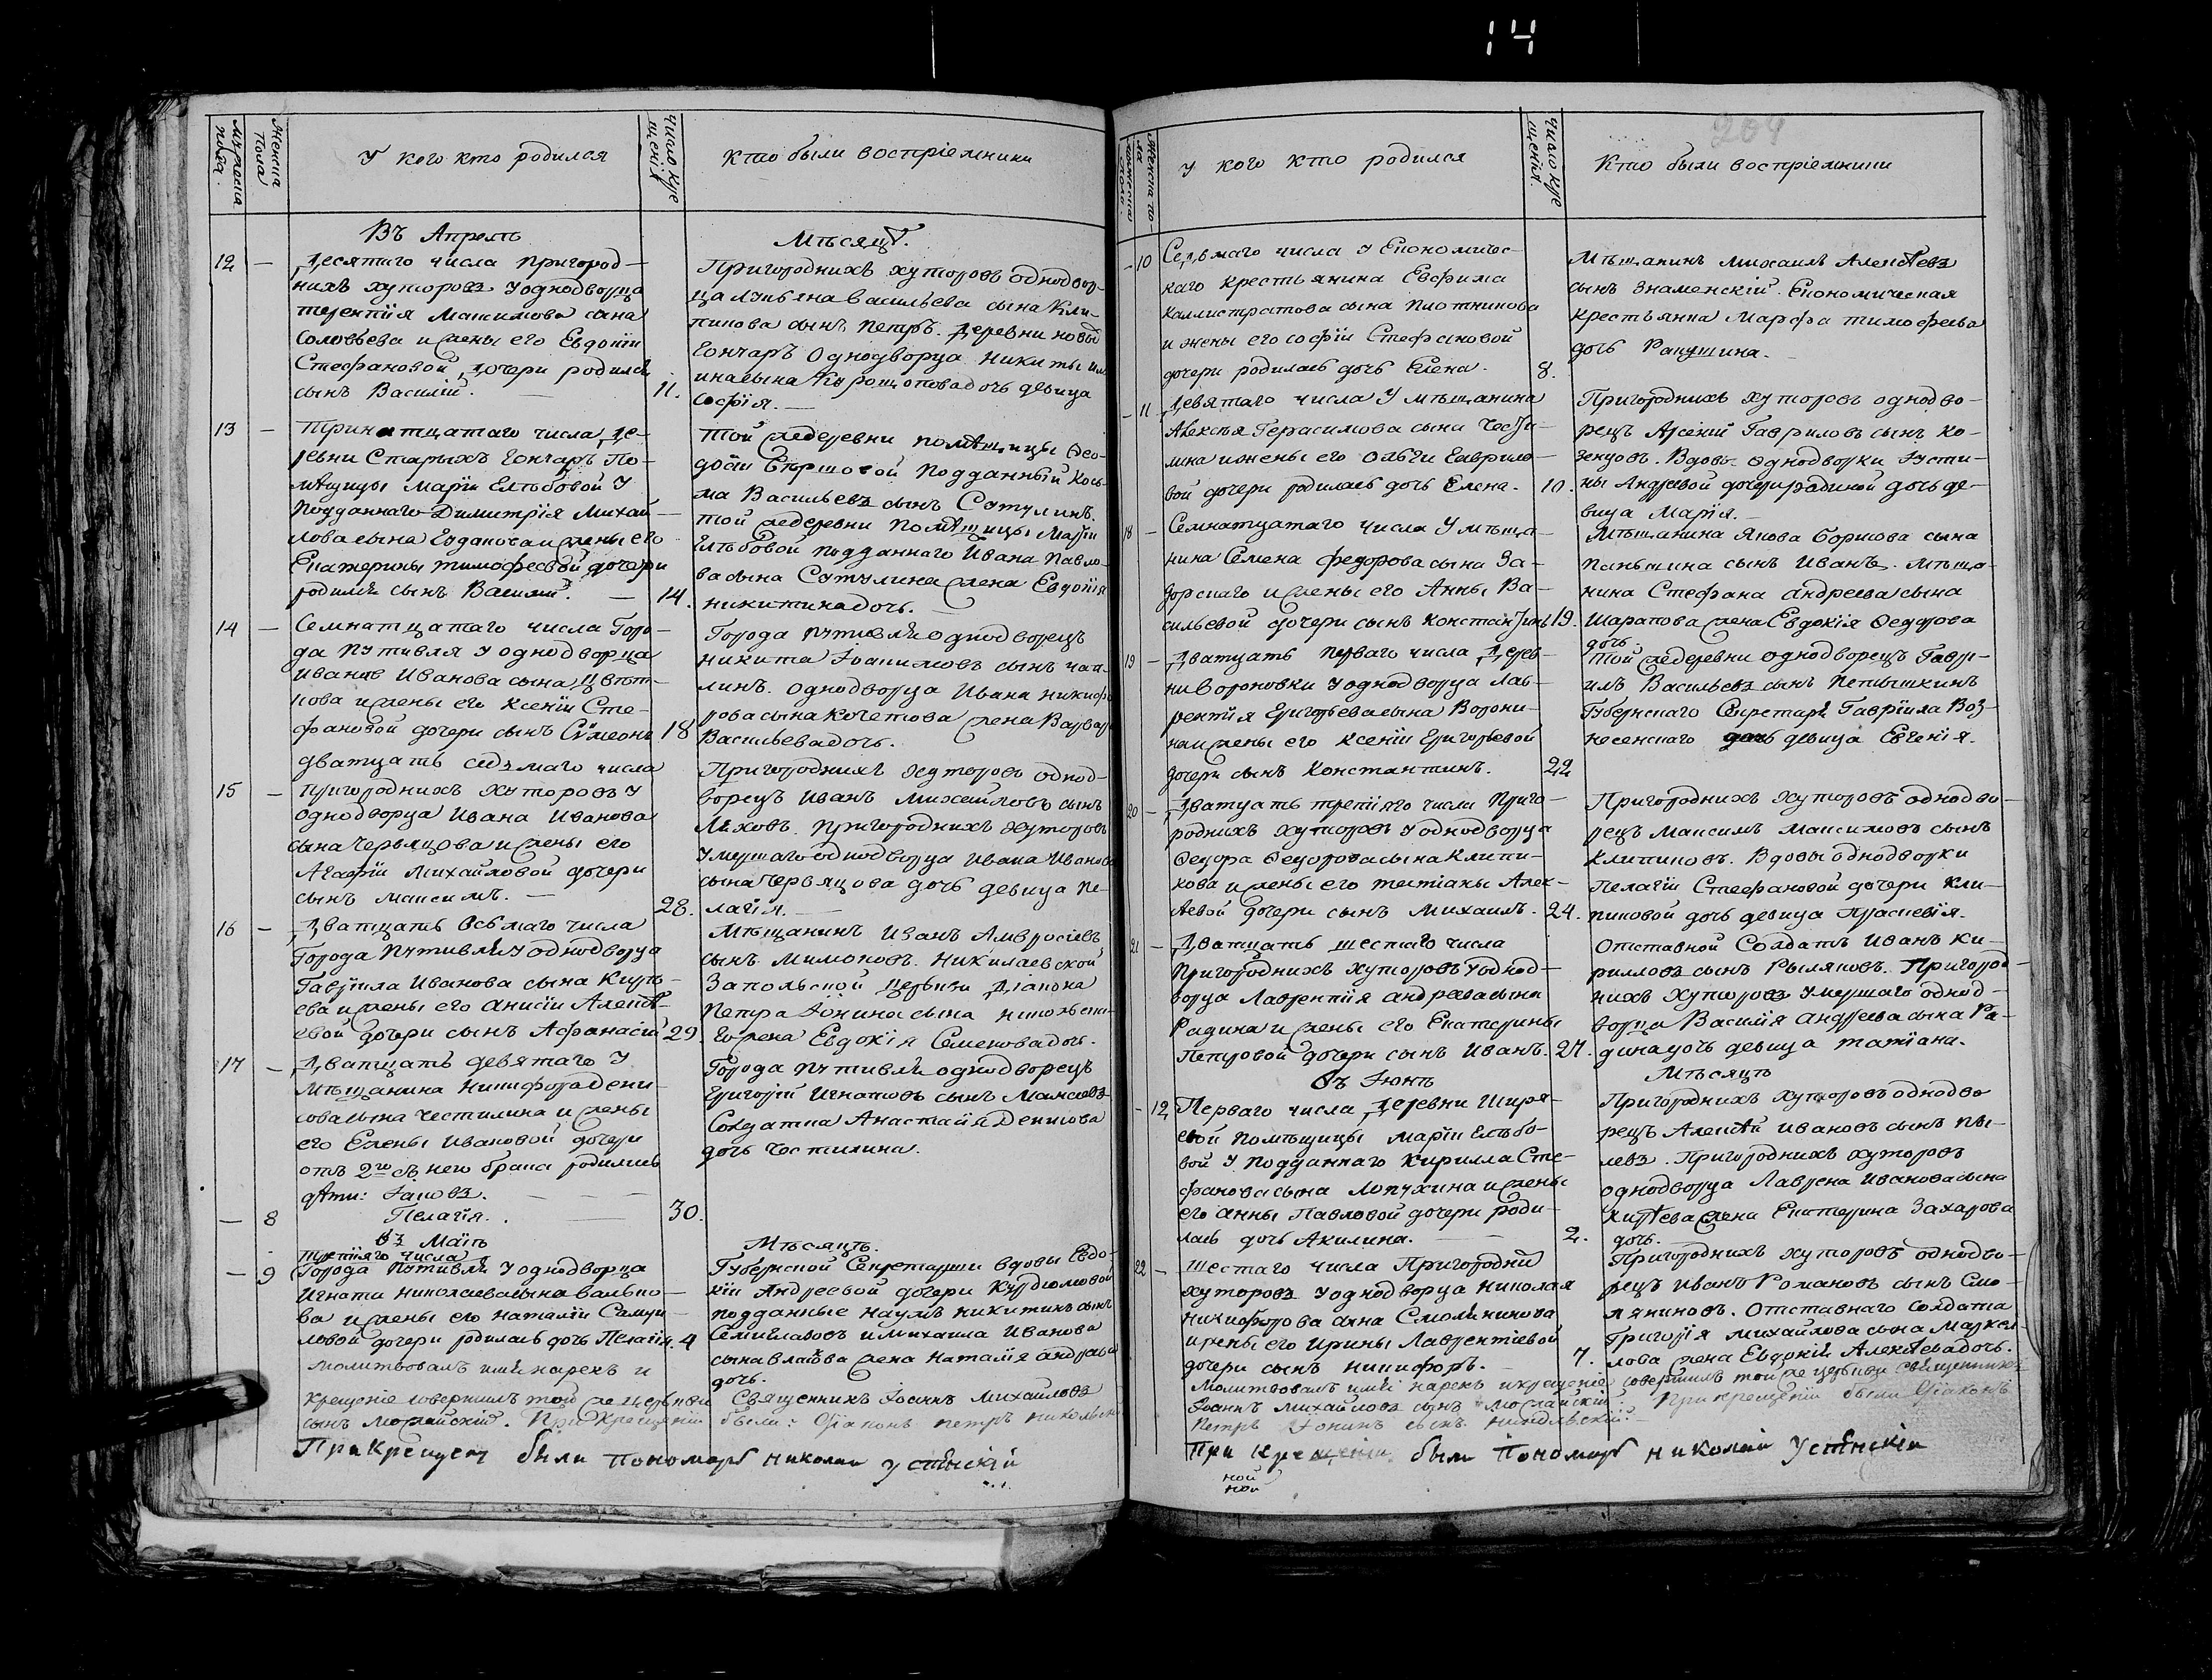 14
204
Мужеска пола.
Женска пола
У кого кто родился
Число крещенія
Кто были воспріемники
Въ Апрелѣ
Мѣсяцѣ.
12 — Десятаго числа Пригород-
нихъ хуторовъ У однодворца
терентія Максимова сына
Соловьева и жены его Евдокіи
Стефановой дочери родился
сынъ Василій. — 11.
Пригороднихъ хуторовъ однодвор-
ца Лукьяна Васильева сына Кли-
пикова сынъ Петръ. Деревни новы
Гончаръ Однодворца Никиты
дочь девица
Софія. —
13 — Тринатцатаго числа де-
ревни Старыхъ Гончаръ По-
мѣщицы Маріи Елѣбовой У
подданнаго Димитрія Михай-
лова сына и жены его
Екатерины тимофеевой дочери
родился сынъ Василій. — 14.
Той же деревни помѣщицы Ѳео-
досіи Ершовой подданный Кось-
ма Васильевъ сынъ Сотулинъ.
той же деревни Помѣщицы Маріи
Елѣбовой подданнаго Ивана Павло-
ва сына Сотулина жена Евдокія
никитина дочь. —
14 — Семнатцатаго числа Горо-
да Путивля у однодворца
Ивана Иванова сына Цвѣт-
кова и жены его Ксеніи Сте-
фановой дочери сынъ Сумеонъ 18
Города Путивля однодворецъ
Никита Іоакимовъ сынъ Чап-
линъ. Однодворца Ивана Никифо
рова сына Кочетова жена Варвара
Васильева дочь.
дватцать седьмаго числа
15 — пригороднихъ хуторовъ У
однодворца Ивана Иванова
сына Червяцова и жены его
Агафіи Михайловой дочери
сынъ Максимъ. — 28.
Пригороднихъ хуторовъ однод-
ворецъ Иванъ Михайловъ сынъ
Ляховъ. Пригороднихъ хуторовъ
умершаго однодворца Ивана Иванова
сына Червяцова дочь девица Пе-
лагія. —
16 — Дватцать Осьмаго числа
Города Путивля У однодворца
Гавріила Иванова сына
ева и жены его Анисіи Алексѣ-
евой дочери сынъ Афанасій 29.
Мѣщанинъ Иванъ Амвросіевъ
сынъ Мимоновъ. Николаевской
Запольской Церкви Діакона
Петра Іонина сына Никольска-
го жена Евдокія Семенова дочь.
17 — Дватцать девятаго У
Мѣщанина Никифора Дени-
сова сына Честилина и жены
его Елены Ивановой дочери
отъ 2го съ него брака родились
дѣти: Іаковъ. — — —
— 8 Пелагія. . — 30.
Города Путивля однодворецъ
Григорій Игнатовъ сынъ
Солдатка Анастасія Денисова
дочь Честилина.
Въ Маіѣ
Мѣсяцѣ.
третіяго числа
— 9 Города Путивля У однодворца
Игната Николаева сына Валько-
ва и жены его Наталіи Самуи-
ловой дочери родилась дочь Пелагія. 4
Губернской Секретарши вдовы Евдо-
кіи Андреевой дочери Курдюмовой
подданные Наумъ Никитинъ сынъ
и Михаила Иванова
сына Власова жена Наталія Андреева
дочь.
Молитвовалъ имя нарекъ и
крещеніе совершилъ той же церкви Священникъ Іоаннъ Михайловъ
сынъ Можайскій. При Крещеніи были: Діаконъ Петръ Никольскій
При Крещеніи были Пономарь Николай Устинскій
Женска по-
ла
мужеска
пола.
У кого кто родился
Число крещенія.
Кто были воспріемники
— 10 Седьмаго числа У Економичес-
каго крестьянина Евфима
Каллистратова сына Плотникова
и жены его Софіи Стефановой
дочери родилась дочь Елена. 8.
Мѣщанинъ Михаилъ Алексѣевъ
сынъ Знаменскій. Економическая
крестьянка Марфа тимофеева
дочь Ракушина. —
— 11 Девятаго числа У мѣщанина
Алексѣя Герасимова сына Чести-
лина и жены его Ольги Гаврило-
вой дочери родилась дочь Елена. 10.
Пригороднихъ хуторовъ однодво-
рецъ Арсеній Гавриловъ сынъ Ко-
зенцовъ. Вдовы однодворки Іусти-
ны Андреевой дочери Радиной дочь де-
вица Марія. —
18 — Семнатцатаго числа У мѣща-
нина Семена федорова сына За-
горскаго и жены его Анны Ва-
сильевой дочери сынъ Константинъ 19.
Мѣщанина Якова Борисова сына
Паньшина сынъ Иванъ. Мѣща-
нина Стефана Андреева сына
Шарапова жена Евдокія Ѳедорова
дочь.
19 — Дватцать перваго числа Дерев-
ни Вороновки у однодворца Лав-
рентія Григорьева сына Ворони-
на и жены его Ксеніи Григорьевой
дочери сынъ Константинъ. 22
Той же деревни однодворецъ Гаври-
илъ Васильевъ сынъ Петышкинъ
Губернскаго Секретаря Гавріила Воз-
несенскаго дочь девица Евгенія.
20 — Дватцать третіяго числа Приго-
роднихъ хуторовъ У однодворца
Ѳедора Ѳедорова сына Клипи-
кова и жены его татіаны Алек-
ѣевой дочери сынъ Михаилъ. 24.
Пригороднихъ хуторовъ однодво-
рецъ Максимъ Максимовъ сынъ
Клипиковъ. Вдовы однодворки
Пелагіи Стефановой дочери Кли-
пиковой дочь девица Праскевія.
21 — Дватцать шестаго числа
Пригороднихъ хуторовъ У однод-
ворца Лаврентія Андреева сына
Радина и жены его Екатерины
Петровой дочери сынъ Иванъ. 27.
Отставной Солдатъ Иванъ Ки-
рилловъ сынъ Рыляковъ. Пригород-
нихъ хуторовъ умершаго однод-
ворца Василія Андреева сына Ра-
дина дочь девица татіана.
Въ Іюнѣ
Мѣсяцѣ
— 12 Перваго числа Деревни Ширя-
евой помѣщицы Маріи Елѣбо-
вой У подданнаго Кирилла Сте-
фанова сына Лопухина и жены
его Анны Павловой дочери роди-
лась дочь Акилина. — 2.
Пригороднихъ хуторовъ однодво
рецъ Алексѣй Ивановъ сынъ Пы-
левъ. Пригороднихъ хуторовъ
однодворца Лаврена Иванова сына
жена Екатерина Захарова
дочь. —
22 — Шестаго числа Пригородни
хуторовъ У однодворца Николая
Никифорова сына Смоляникова
и жены его Ирины Лаврентіевой
дочери сынъ Никифоръ. — 7.
Пригороднихъ хуторовъ однодво-
рецъ Иванъ Романовъ сынъ Смо-
ляниковъ. Отставнаго Солдата
Григорія Михайлова сына Маркел-
лова жена Евдокія Алексѣева дочь.
Молитвовалъ имя нарекъ и крещеніе совершилъ той же церкви священникъ
Іоаннъ Михайловъ сынъ Можайскій. При крещеніи были Діаконъ
Петръ Іонинъ сынъ Никольскій.
При крещеніи были Пономарь Николай Устинскій
ной
ной